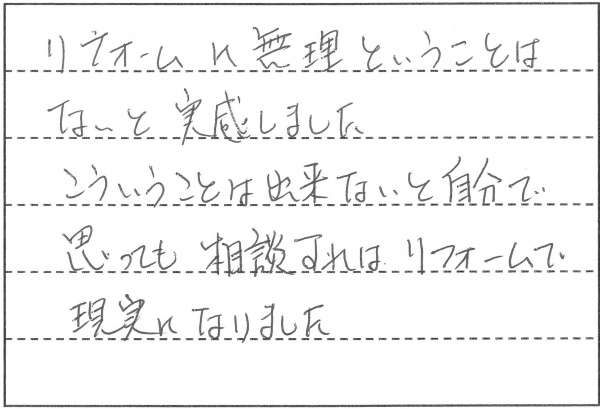 リフォームに無理ということは
ないと実感しました
こういうことは出来ないと自分で
思っても相談すればリフォームで
現実になりました